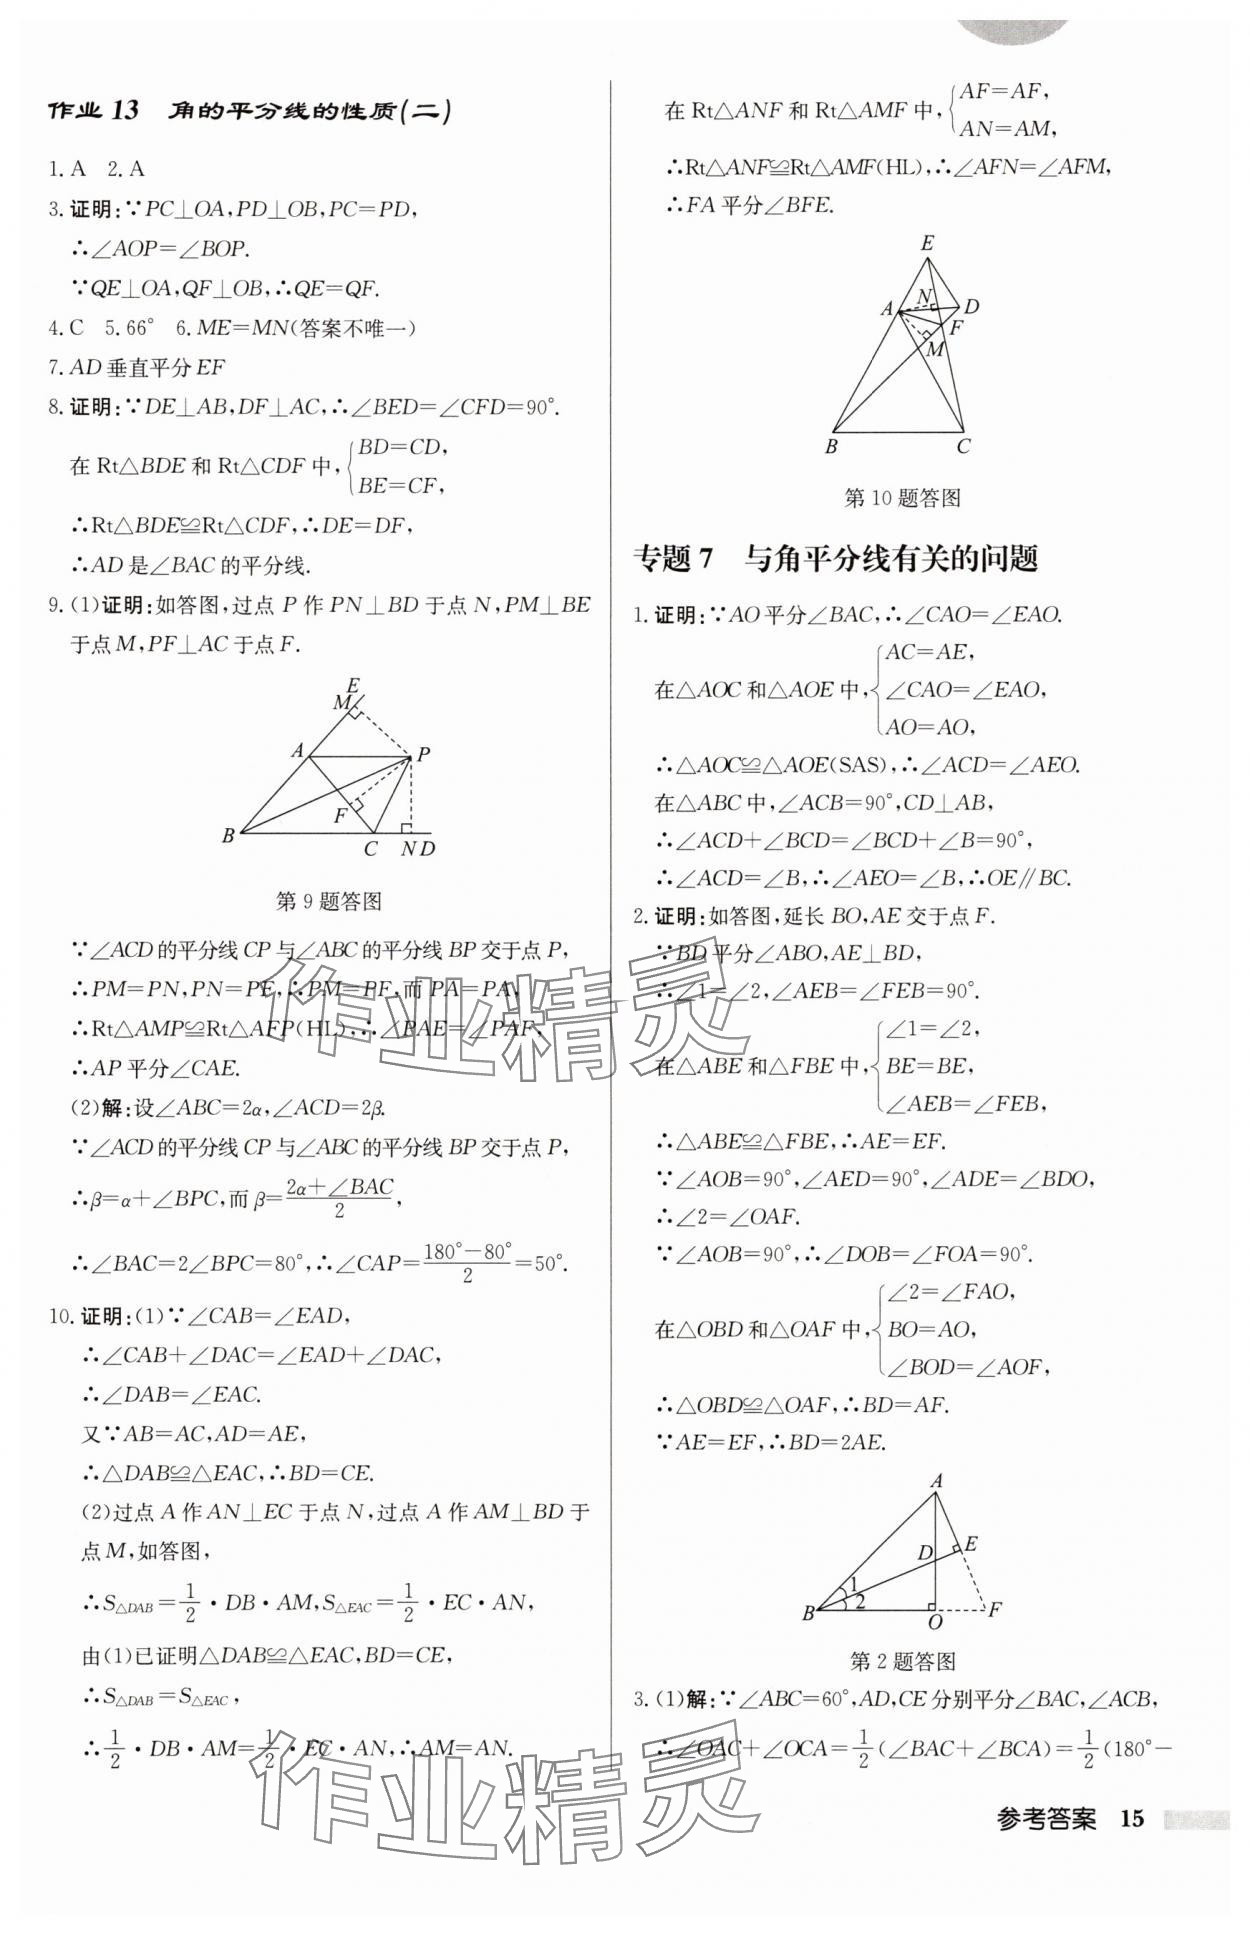 作业 13 角的平分线的性质(二)
1. A 2. A
3. 证明:∵PC⊥OA,PD⊥OB,PC=PD,
∴∠AOP=∠BOP.
∵QE⊥OA,QF⊥OB,∴QE=QF.
4. C 5. 66° 6. ME=MN(答案不唯一)
7. AD 垂直平分 EF
8. 证明:∵DE⊥AB,DF⊥AC,∴∠BED=∠CFD=90°.
在 Rt△BDE 和 Rt△CDF 中,{BD=CD,
BE=CF,
∴Rt△BDE≌Rt△CDF,∴DE=DF,
∴AD 是∠BAC 的平分线.
9. (1)证明:如答图,过点 P 作 PN⊥BD 于点 N,PM⊥BE
于点 M,PF⊥AC 于点 F.
E
M
A
P
F
B
C N D
第 9 题答图
∵∠ACD 的平分线 CP 与∠ABC 的平分线 BP 交于点 P,
∴PM=PN,PN=PF,∴PM=PF,而 PA=PA,
∴Rt△AMP≌Rt△AFP(HL),∴∠PAE=∠PAF,
∴AP 平分∠CAE.
(2)解:设∠ABC=2α,∠ACD=2β.
∵∠ACD 的平分线 CP 与∠ABC 的平分线 BP 交于点 P,
∴β=α+∠BPC,而 β=(2α+∠BAC)/2,
∴∠BAC=2∠BPC=80°,∴∠CAP=(180°-80°)/2=50°.
10. 证明:(1)∵∠CAB=∠EAD,
∴∠CAB+∠DAC=∠EAD+∠DAC,
∴∠DAB=∠EAC.
又∵AB=AC,AD=AE,
∴△DAB≌△EAC,∴BD=CE.
(2)过点 A 作 AN⊥EC 于点 N,过点 A 作 AM⊥BD 于
点 M,如答图,
∴S△DAB=1/2·DB·AM,S△EAC=1/2·EC·AN,
由(1)已证明△DAB≌△EAC,BD=CE,
∴S△DAB=S△EAC,
∴1/2·DB·AM=1/2·EC·AN,∴AM=AN.
在 Rt△ANF 和 Rt△AMF 中,{AF=AF,
AN=AM,
∴Rt△ANF≌Rt△AMF(HL),∴∠AFN=∠AFM,
∴FA 平分∠BFE.
E
A N D
F
M
B C
第 10 题答图
专题 7 与角平分线有关的问题
1. 证明:∵AO 平分∠BAC,∴∠CAO=∠EAO.
在△AOC 和△AOE 中,{AC=AE,
∠CAO=∠EAO,
AO=AO,
∴△AOC≌△AOE(SAS),∴∠ACD=∠AEO.
在△ABC 中,∠ACB=90°,CD⊥AB,
∴∠ACD+∠BCD=∠BCD+∠B=90°,
∴∠ACD=∠B,∴∠AEO=∠B,∴OE∥BC.
2. 证明:如答图,延长 BO,AE 交于点 F.
∵BD 平分∠ABO,AE⊥BD,
∴∠1=∠2,∠AEB=∠FEB=90°.
在△ABE 和△FBE 中,{∠1=∠2,
BE=BE,
∠AEB=∠FEB,
∴△ABE≌△FBE,∴AE=EF.
∵∠AOB=90°,∠AED=90°,∠ADE=∠BDO,
∴∠2=∠OAF.
∵∠AOB=90°,∴∠DOB=∠FOA=90°.
在△OBD 和△OAF 中,{∠2=∠FAO,
BO=AO,
∠BOD=∠AOF,
∴△OBD≌△OAF,∴BD=AF.
∵AE=EF,∴BD=2AE.
A
D E
1
2
B O F
第 2 题答图
3. (1)解:∵∠ABC=60°,AD,CE 分别平分∠BAC,∠ACB,
∴∠OAC+∠OCA=1/2(∠BAC+∠BCA)=1/2(180°-
参考答案 15
作业精灵
作业精灵